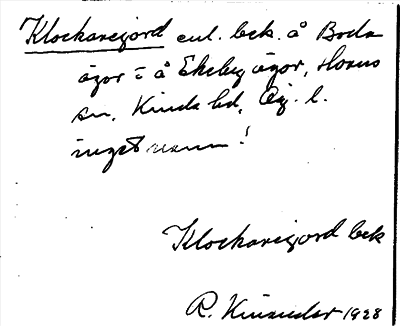 Klockarejord enl. bek. å Boda
ägor = å Ekeby ägor, Horns
sn, Kinda hd, Ög. l.
inget namn!
Klockarejord bek
R. Kinander 1928